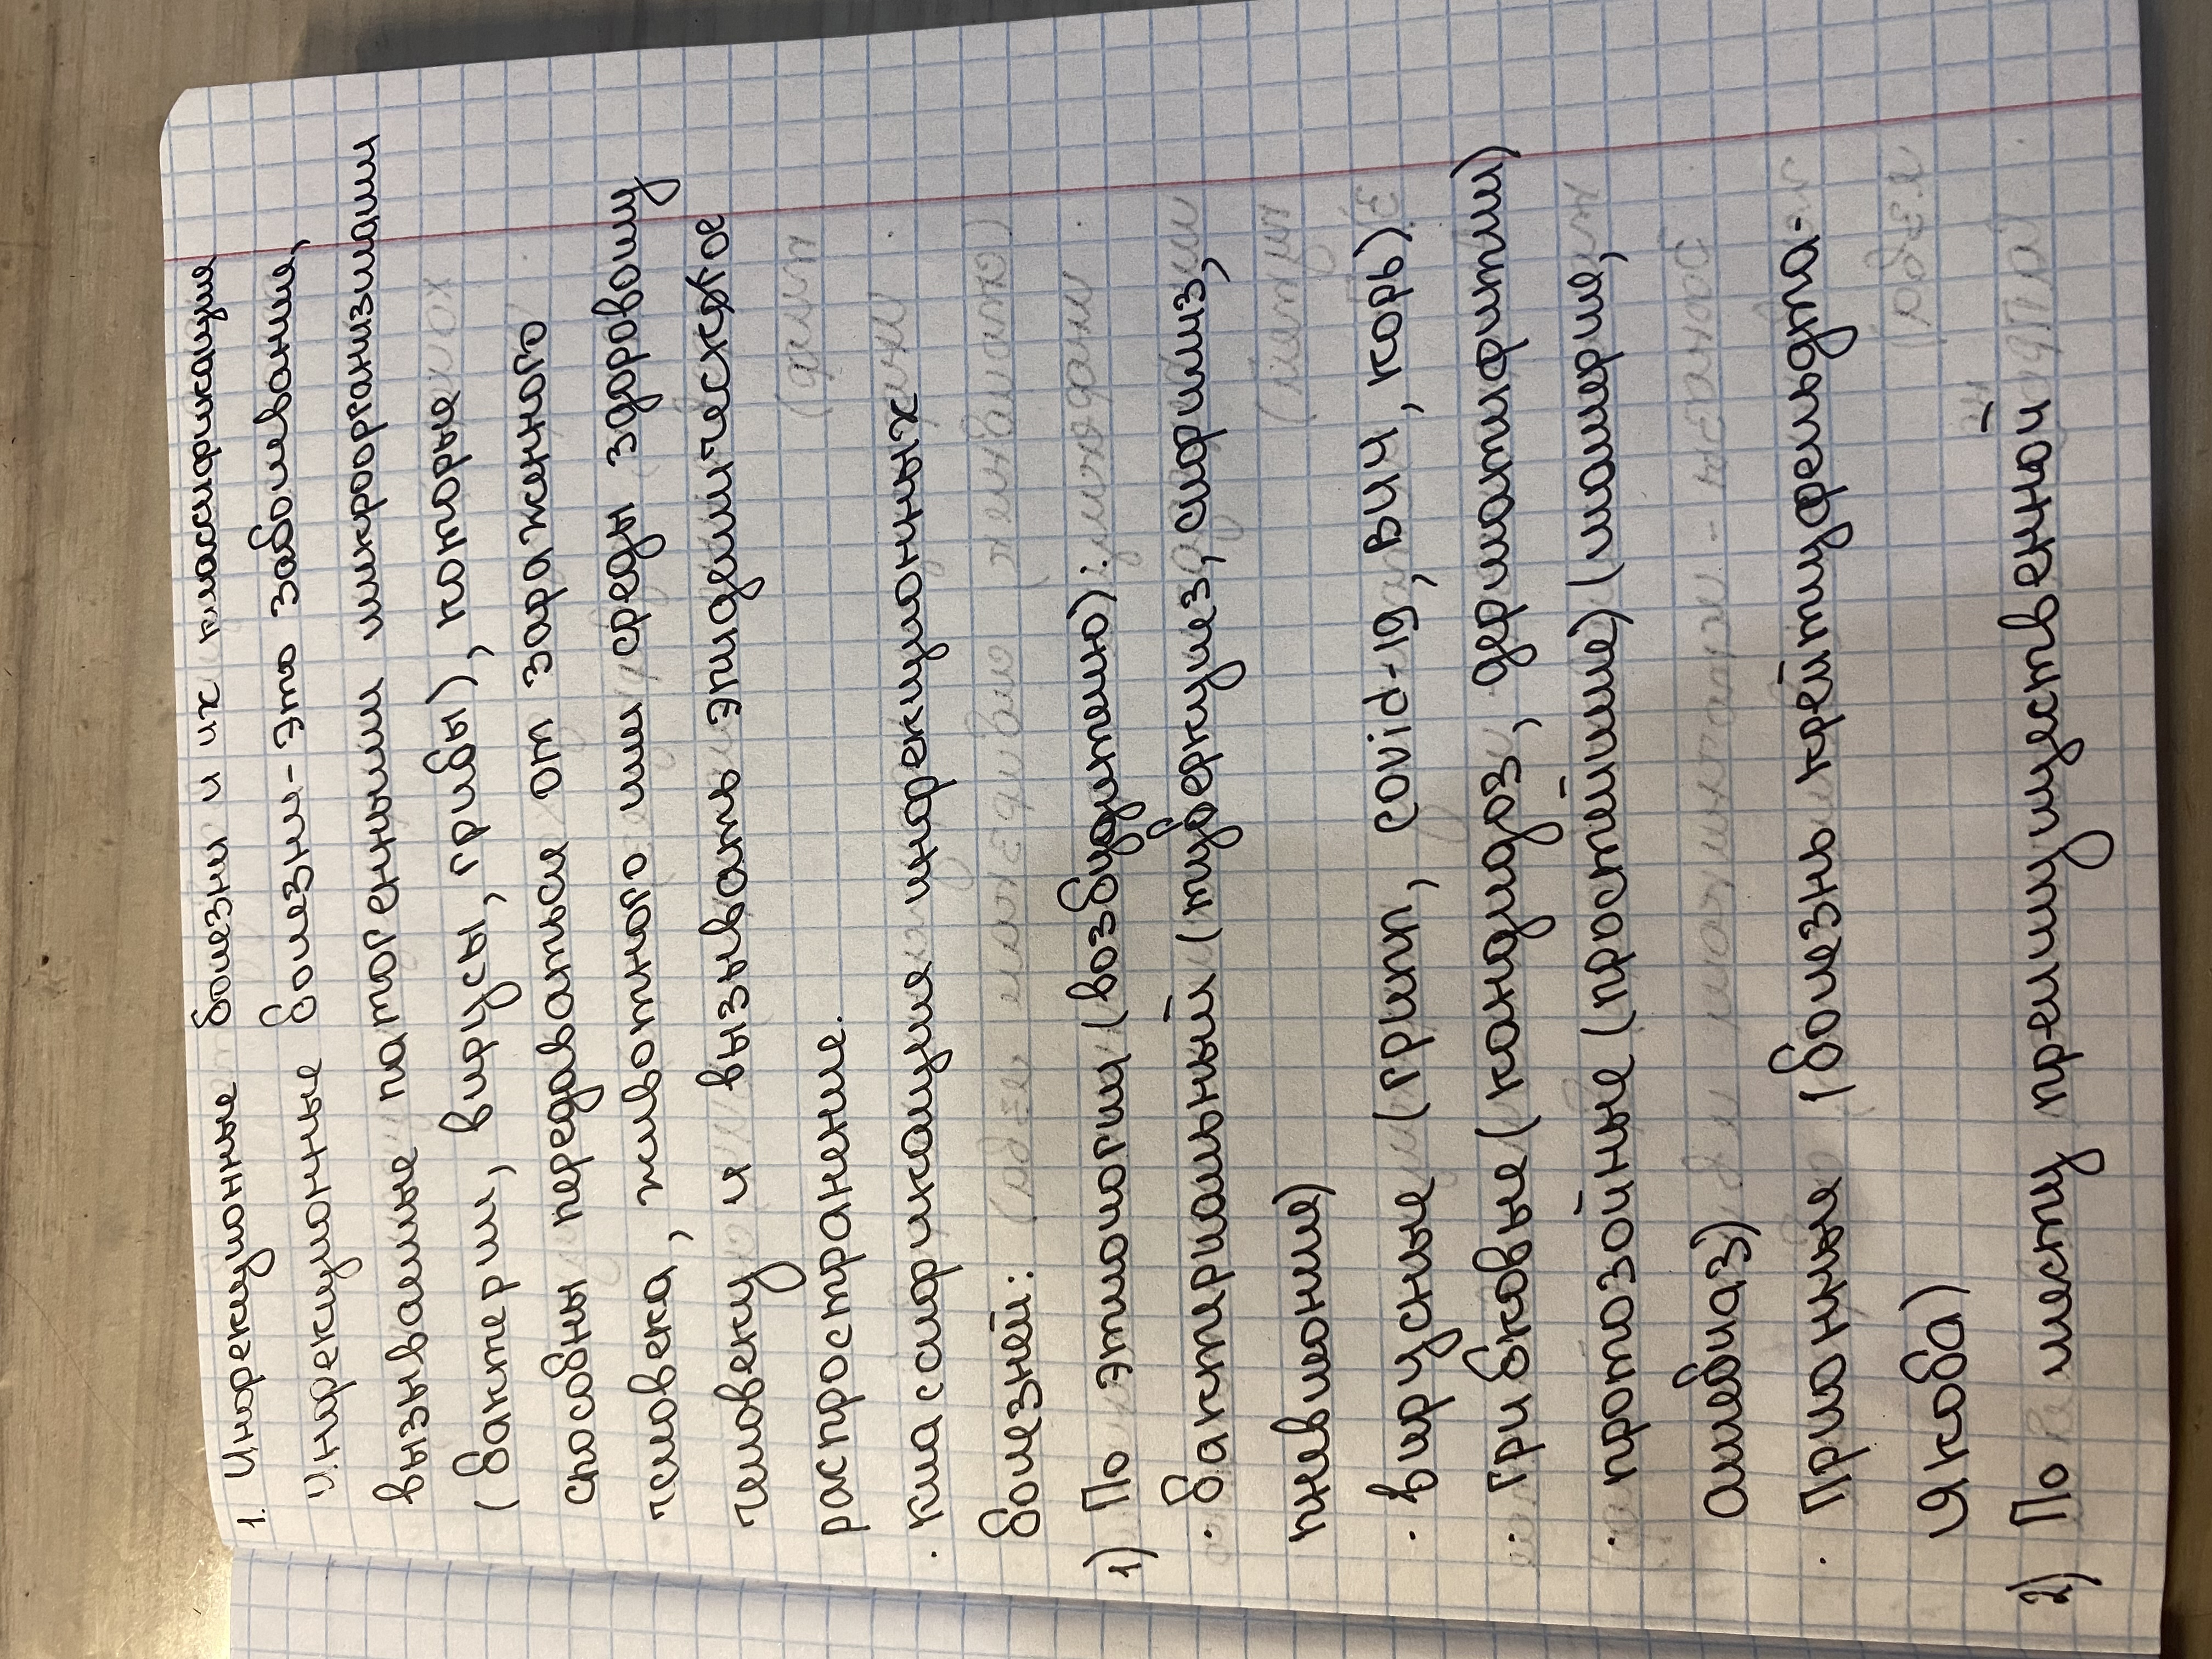 1. Инфекционные болезни и их классификация
Инфекционные болезни - это заболевания,
вызываемые патогенными микроорганизмами
(бактерии, вирусы, грибы), которые
способны передаваться от зараженного
человека, животного или среды здоровому
человеку и вызывать эпидемическое
распространение.
· классификация инфекционных
болезней:
1) По этиологии (возбудителю):
· бактериальный (туберкулез, сифилиз,
пневмония)
· вирусные (грипп, covid-19, ВИЧ, корь)
· грибковые (кандидоз, дерматифитии)
· протозойные (простейшие) (малярия,
амебиаз)
· Прионные (болезнь крейтцфельдта-
Якоба)
2) По месту преимущественной